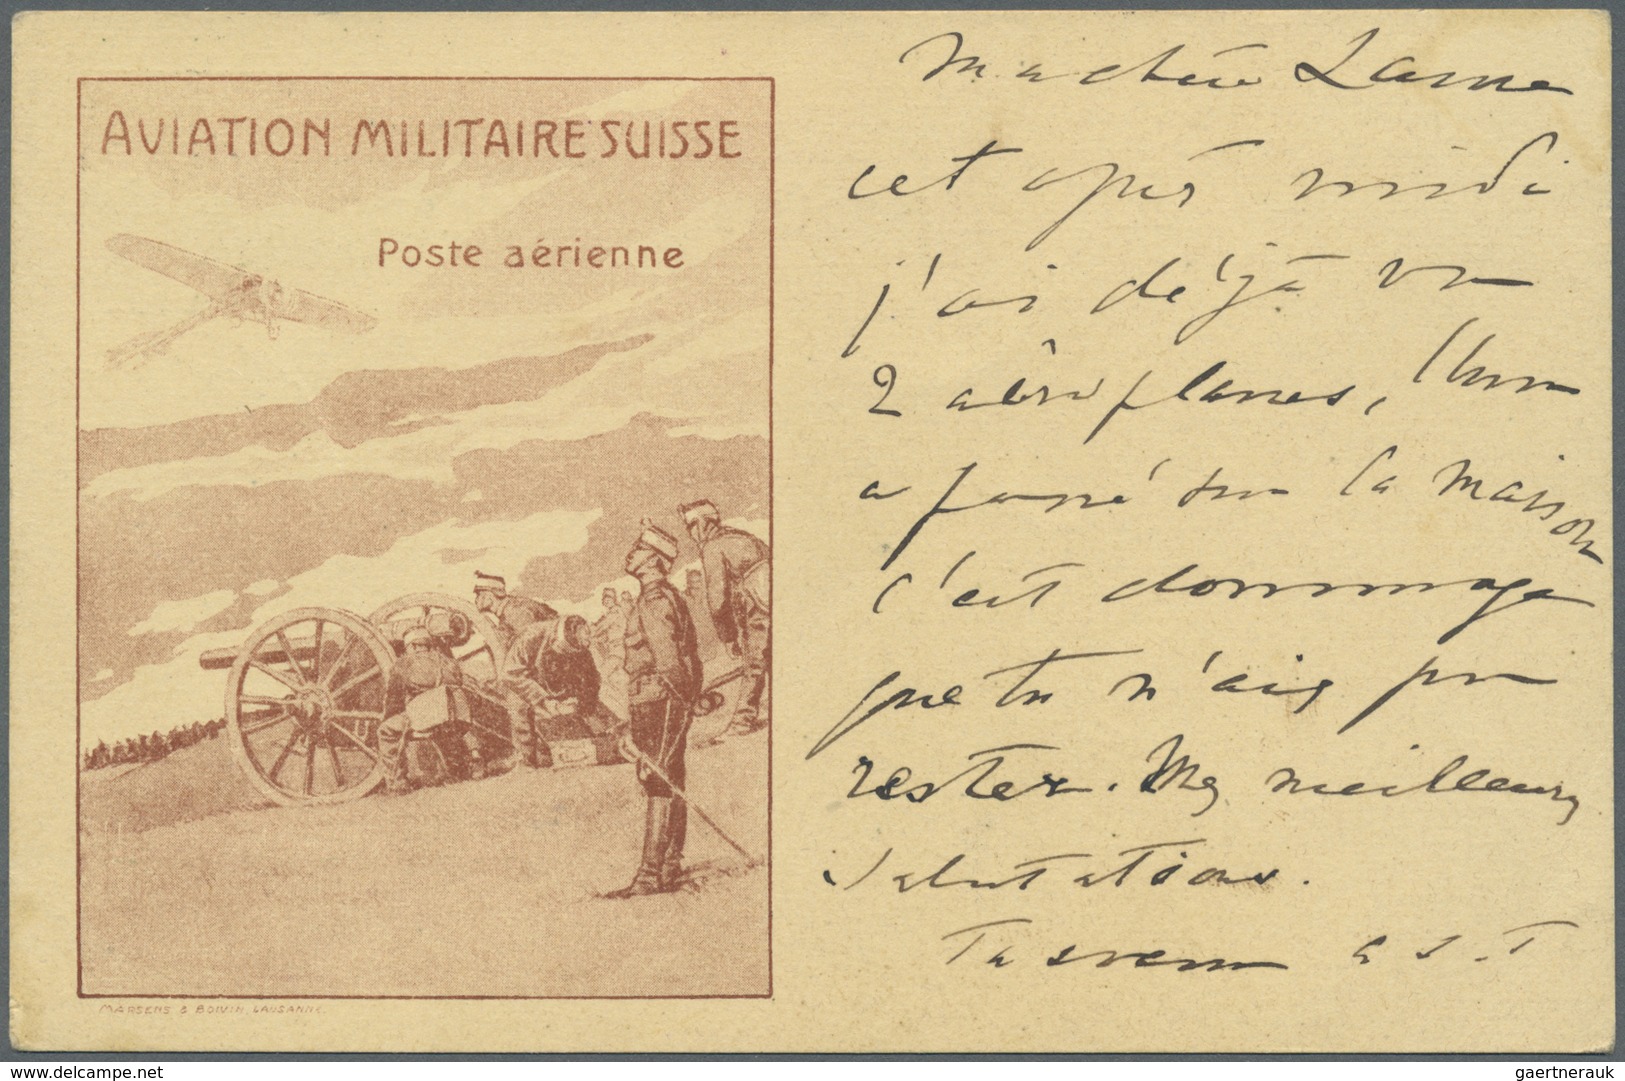 AVIATION MILITAIRE SUISSE
Poste aérienne
MARSENS & BOIVIN, LAUSANNE.
Ma chère
cet après midi
j'ai déjà vu
2 aéroplanes, l'un
a passé sur la maison
c'est dommage
que tu n'ais pu
rester. Mes meilleurs
salutations.
Ta
delcampe.net
gaertnerauk